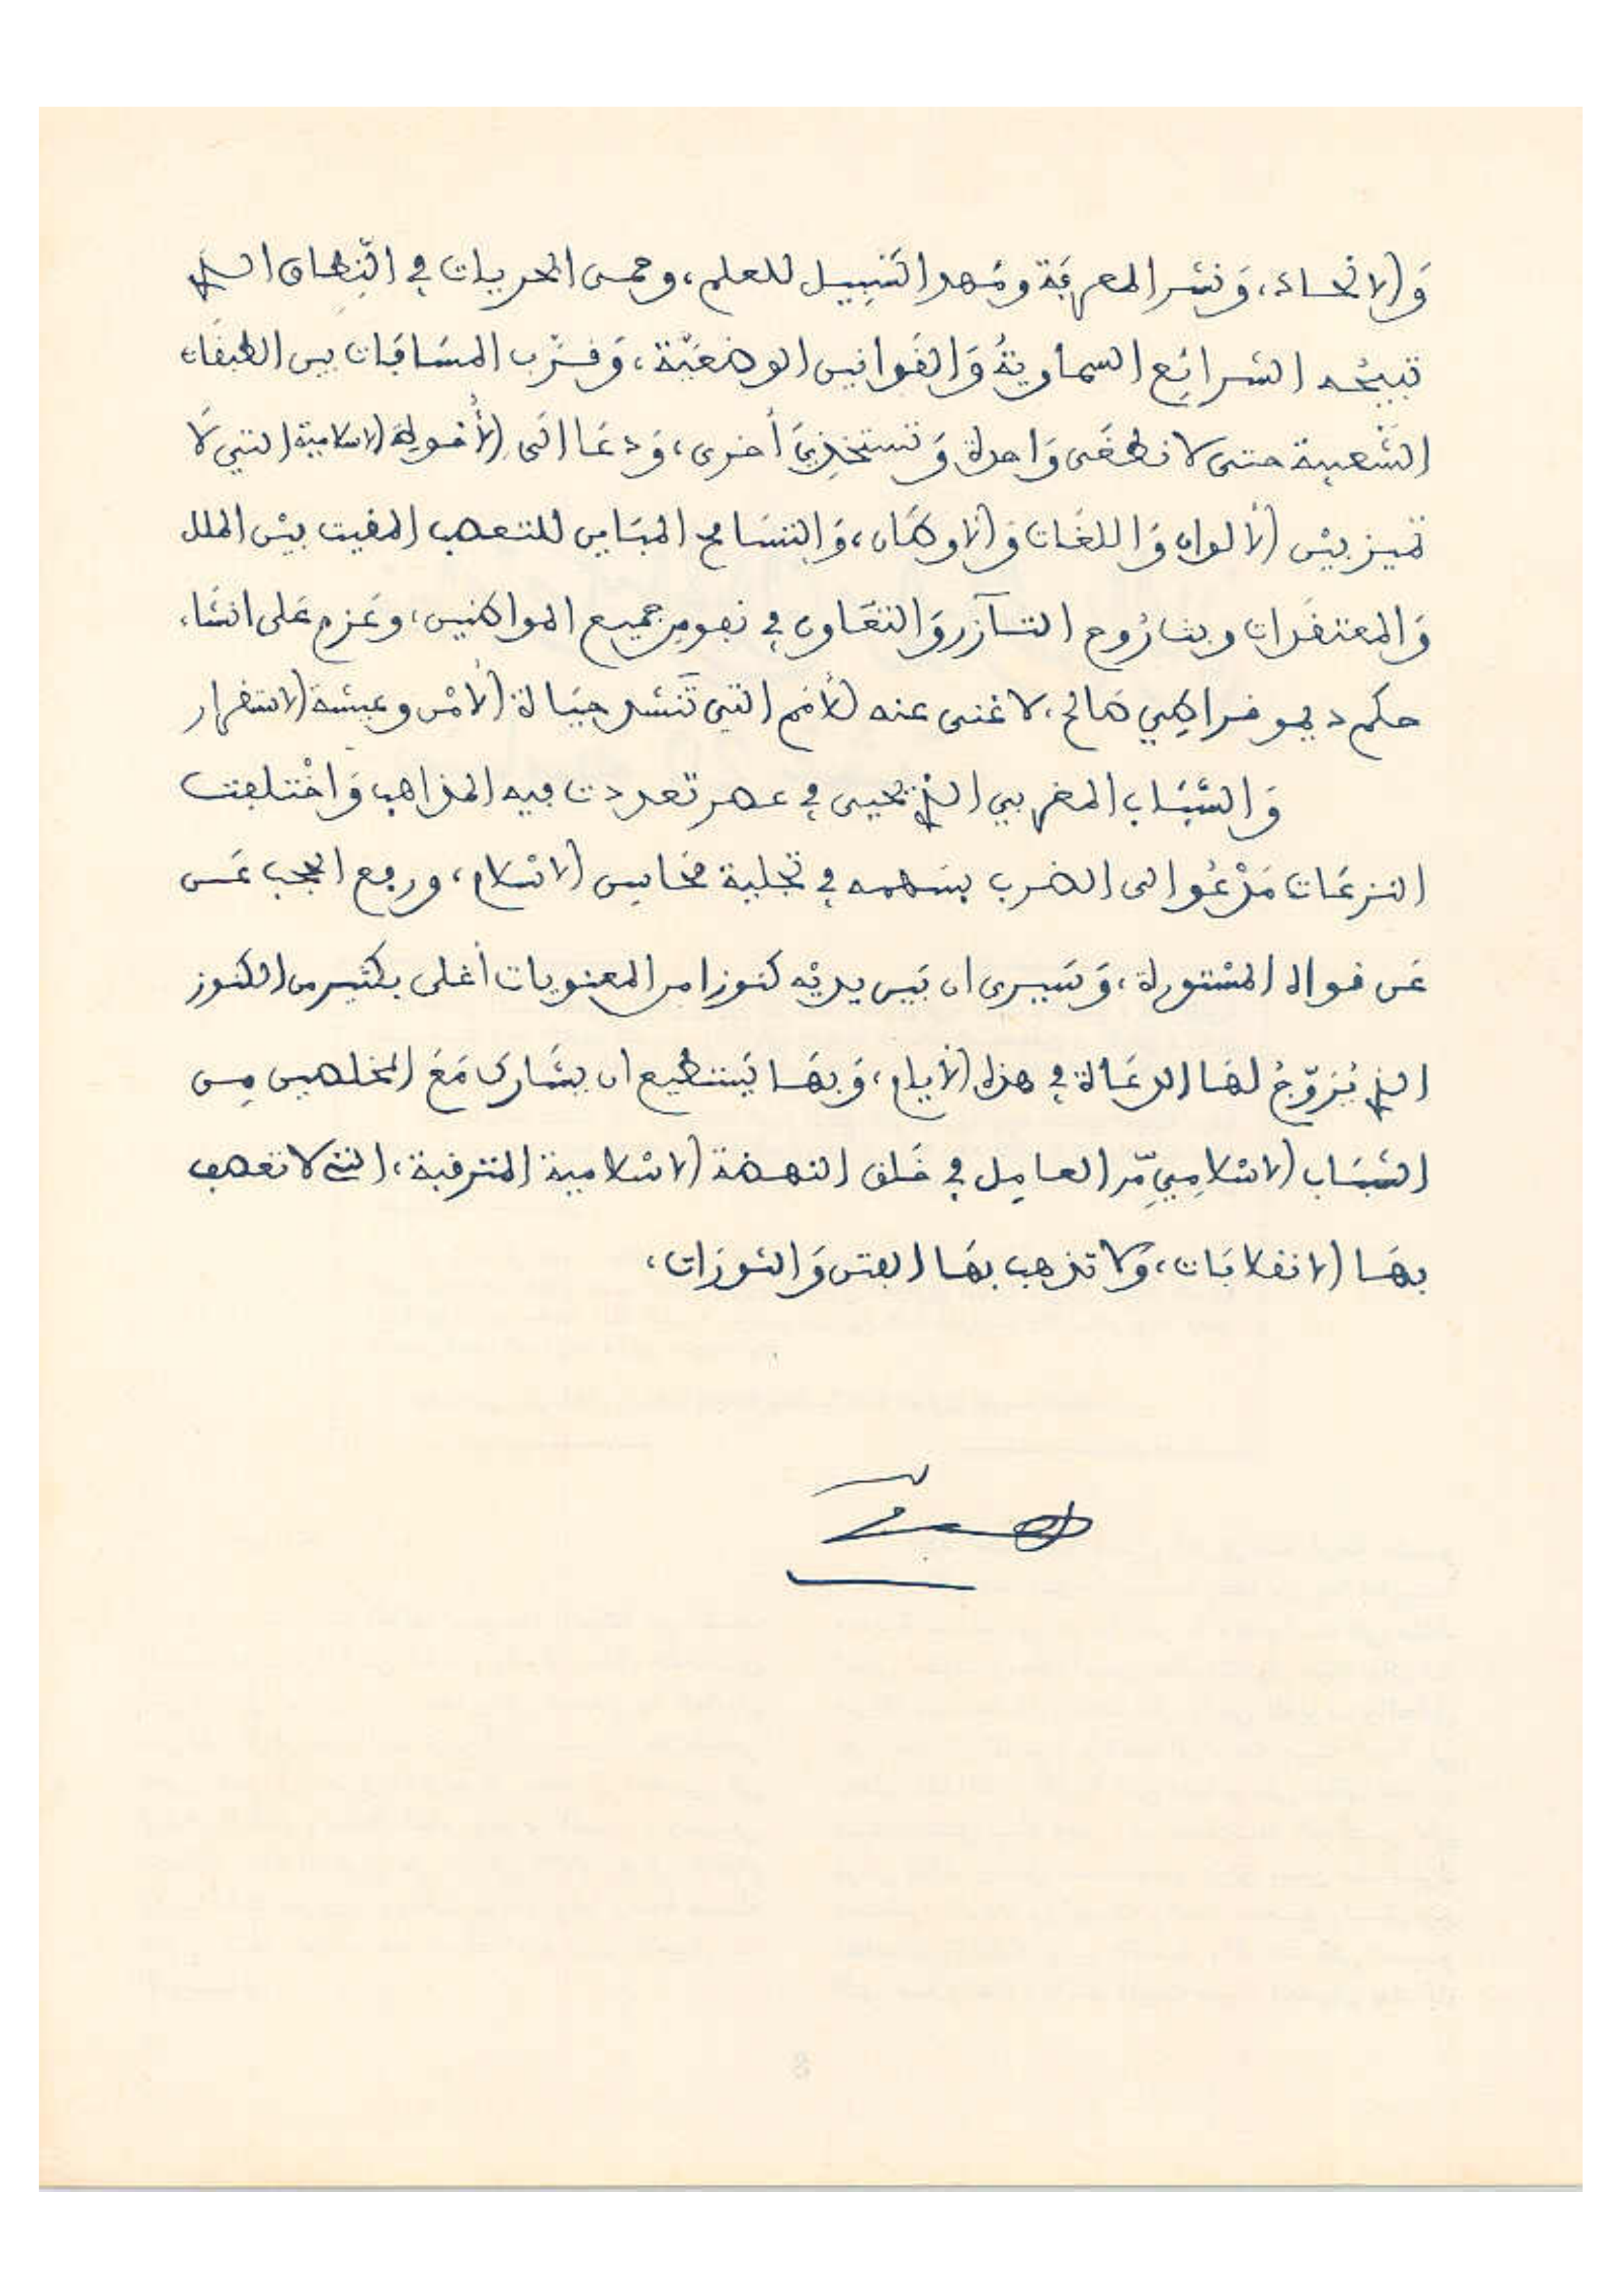 وَالاتحاد، وَنشر المعرفَة ومَهد السَّبِيل للعلم، وحمى الحريات في النِّطاق الذي
تبيحُه الشرائع السماويةُ وَالقوانين الوضعيّة، وَقرّب المسَافات بين الطبقَات
الشَّعبية حتى لا تطغَى وَاحدة وَتستخذيَ أخرى، وَدعَا الَى الأُخوة الاسلامية التي لَا
تميز بيْن الألوان وَاللغَات وَالاوطَان، وَالتسَامح المبَاين للتعصب المقيت بيْن الملل
وَالمعتقدَات وبث رُوح التآزر وَالتعَاون في نفوس جميع المواطنين، وعَزم عَلى انشَاء
حكم ديموقراطِي صَالح، لا غنى عنه للأمم التي تَنشد حيَاة الأمْن وعيشة الاستقرار
وَالشبَاب المغربي الذي يحيى في عصر تعددت فيه المذاهب وَاخْتلفت
النزعَات مَدْعُو الى الضرب بسَهمه في تجلية محَاسن الاسْلام، ورفع الحجب عَن
عَن قواه المسْتورة، وَسَيرى ان بَين يديْه كنوزا من المعنويات أغلى بكثير من الكنوز
التي يُرَوّجُ لهَا الدعَاة في هذه الأيام، وَبهَا يَستطيع ان يشَارك مَعَ المخلصين من
الشبَاب الاسْلامِي مّر العامِل في خَلق النهضة الاسْلامية المترقبة، التي لا تعصف
بهَا الانقلابَات، وَلا تذهب بهَا الفتن وَالثورَات،